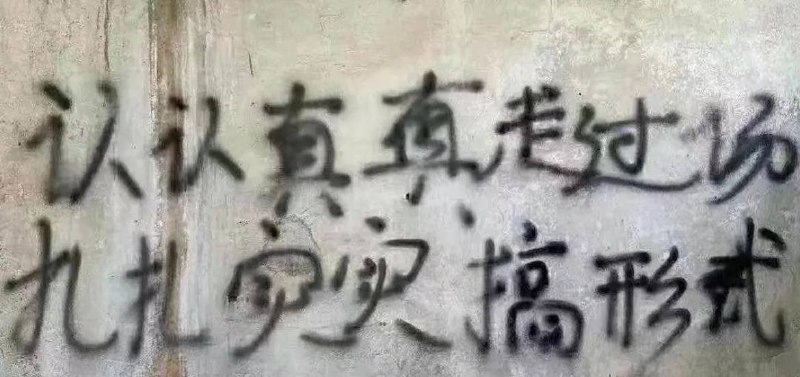 认认真真走过场
扎扎实实搞形式